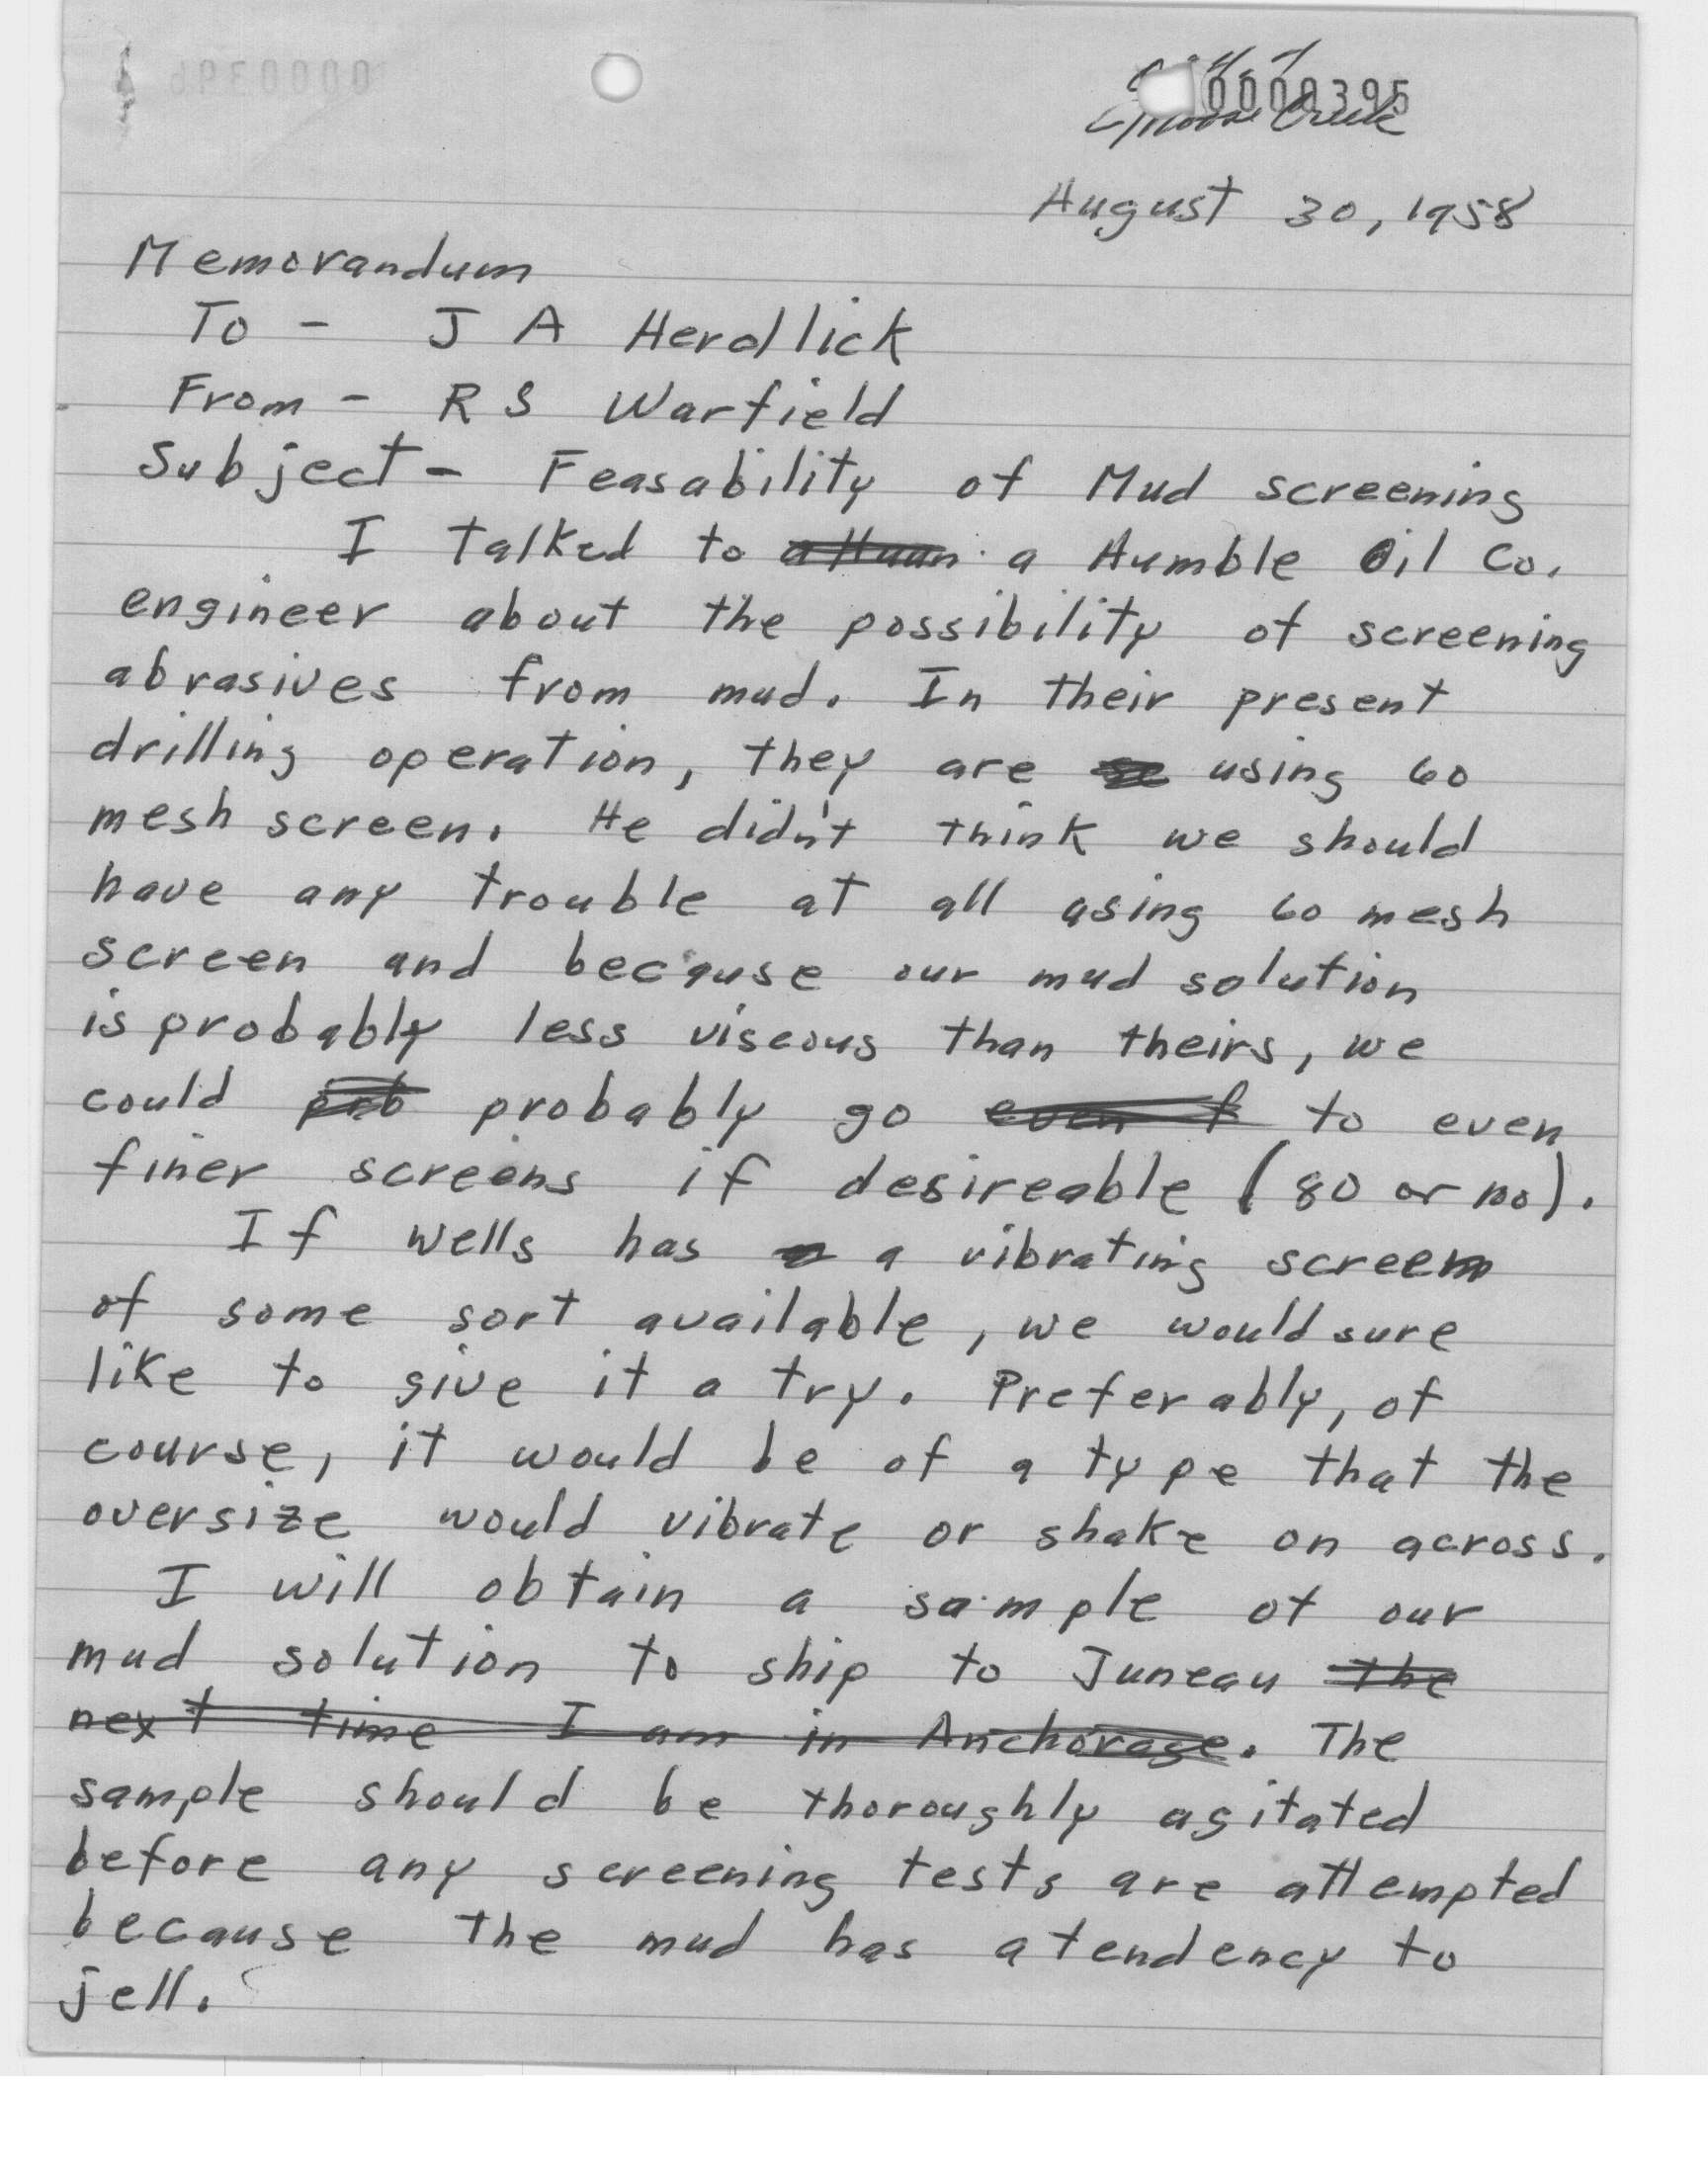 0000395
Moose Creek
August 30, 1958
Memorandum
To - J A Herdlick
From - R S Warfield
Subject - Feasability of Mud screening
I talked to a Humble Oil Co.
engineer about the possibility of screening
abrasives from mud. In their present
drilling operation, they are using 60
mesh screen. He didn't think we should
have any trouble at all using 60 mesh
screen and because our mud solution
is probably less viscous than theirs, we
could probably go even f to even
finer screens if desireable (80 or 100).
If Wells has a vibrating screen
of some sort available, we would sure
like to give it a try. Preferably, of
course, it would be of a type that the
oversize would vibrate or shake on across.
I will obtain a sample of our
mud solution to ship to Juneau the
next time I am in Anchorage. The
sample should be thoroughly agitated
before any screening tests are attempted
because the mud has a tendency to
jell.